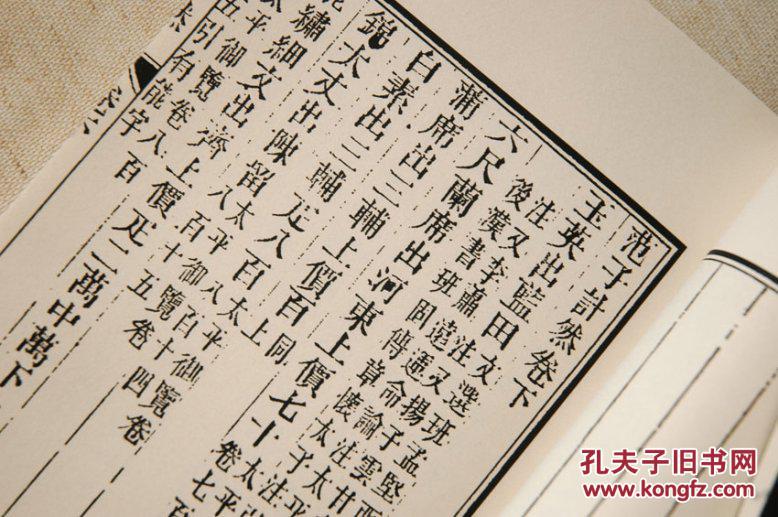 范子計然卷下
玉英出藍田文選班孟堅西
又揚子雲甘
注又李蕭遠運命論注太平
後漢書班固傳章懷太子注
六尺蘭席出河東上價七十太平
卷七百
蒲席出三輔上價百同上
白素出三輔疋八百太平御覽
卷
錦大丈出陳留太平御覽
八百十五卷
繡細文出齊上價疋二萬中萬下
太平御覽卷八百
五引有能字
孔夫子旧书网
www.kongfz.com